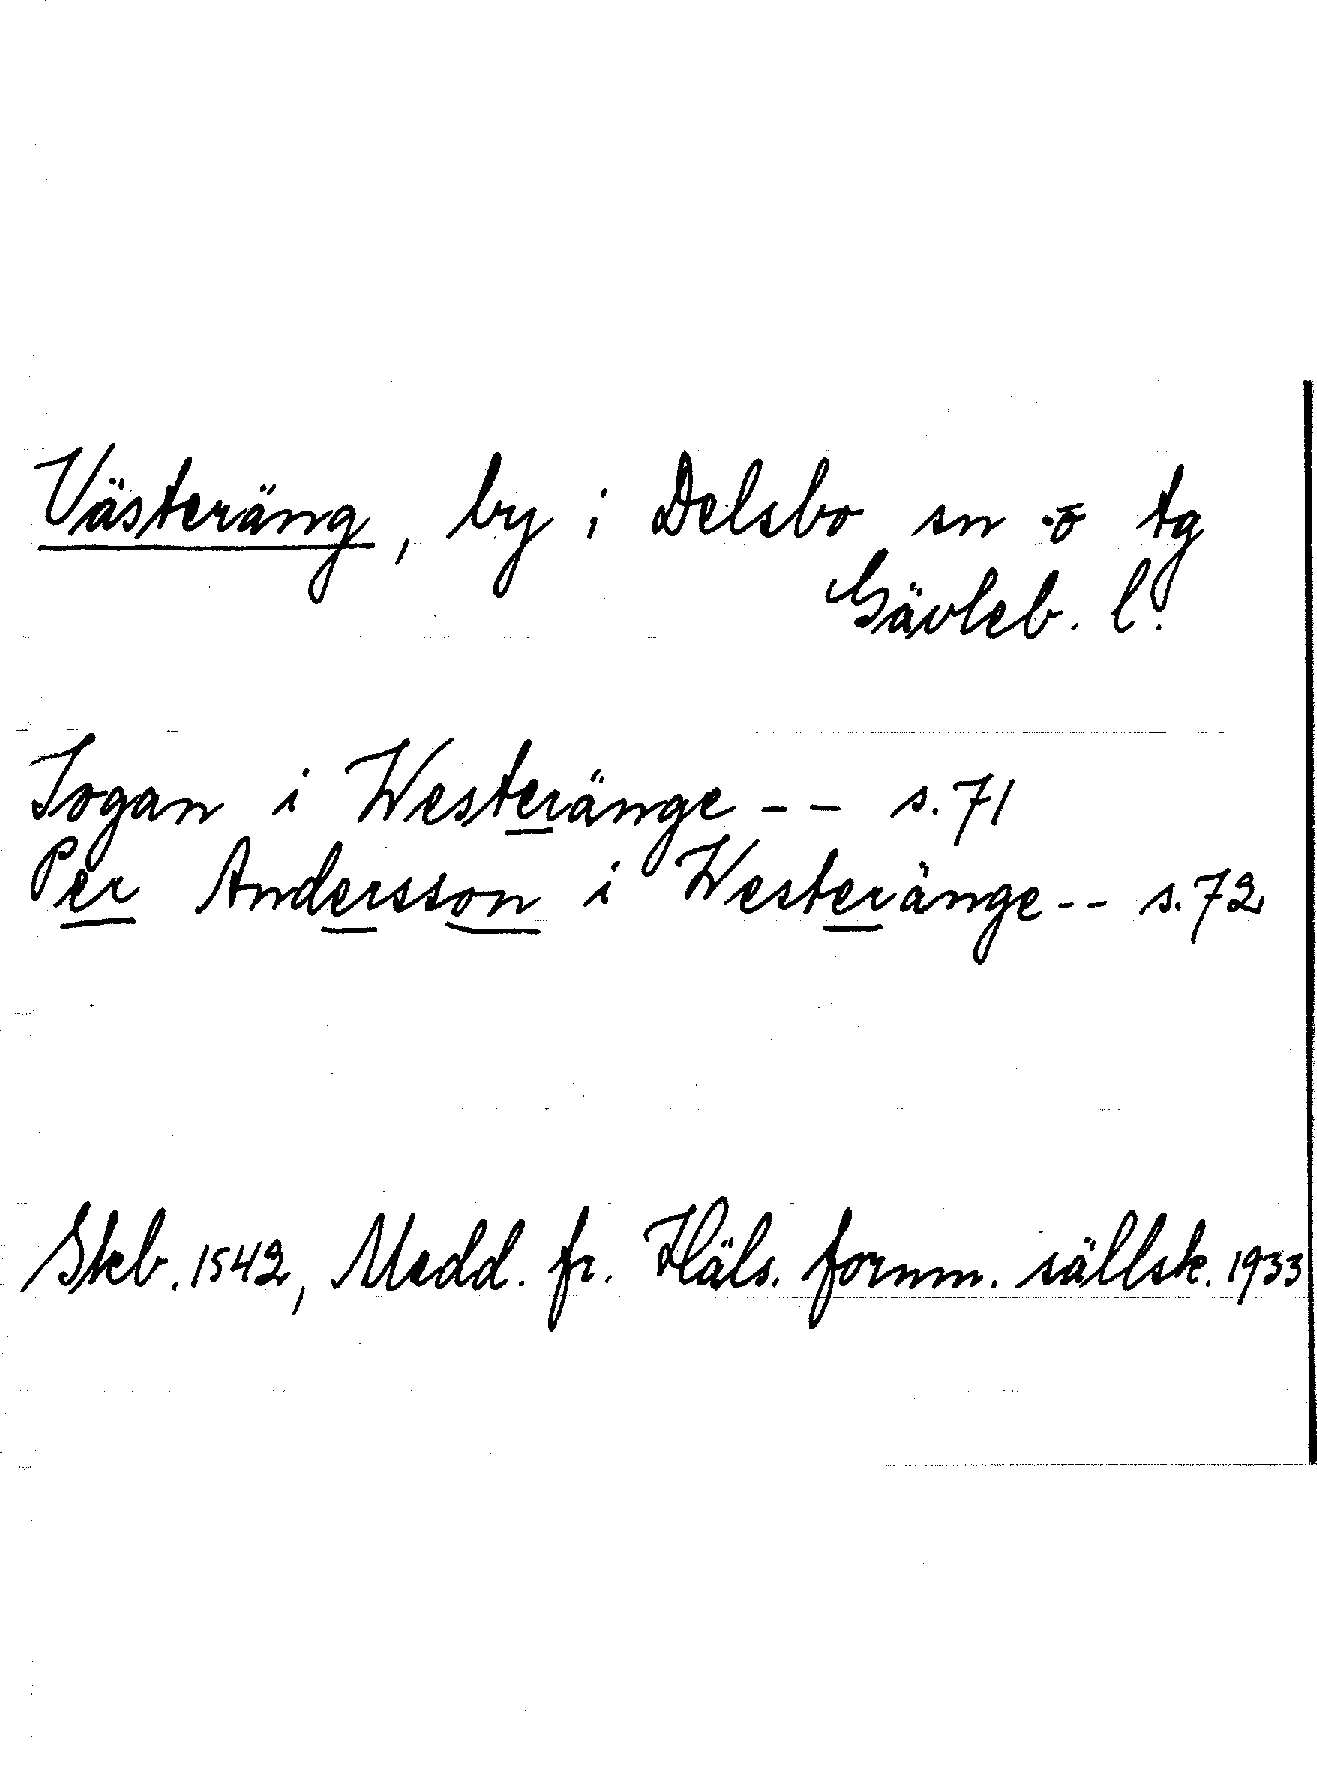 Västeräng, by i Delsbo sn o tg
Gävleb. l.
Jogan i Westeränge -- s. 71
Per Andersson i Westeränge -- s. 72
Skb. 1542, Medd. fr. Häls. fornm. sällsk. 1933